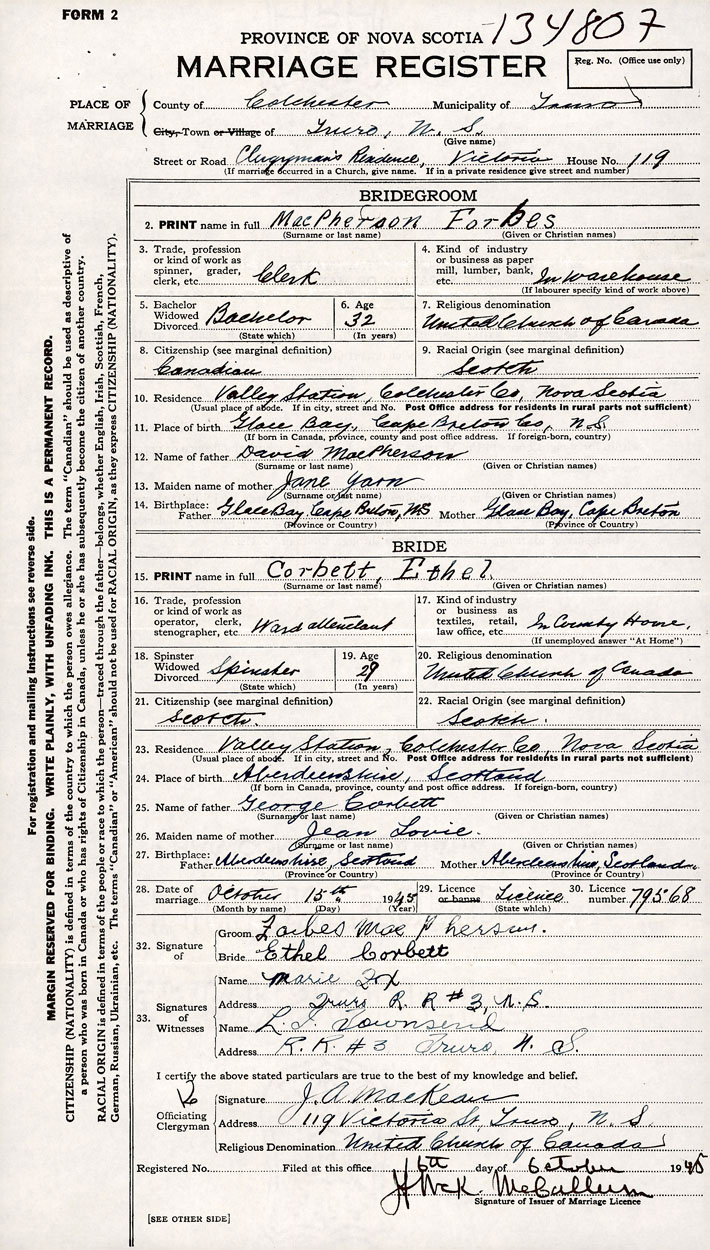 FORM 2
PROVINCE OF NOVA SCOTIA 134807
MARRIAGE REGISTER
Reg. No. (Office use only)
PLACE OF MARRIAGE
County of Colchester Municipality of Truro
City, Town or Village of Truro, N. S.
(Give name)
Street or Road Clergyman's Residence, Victoria House No. 119
(If marriage occurred in a Church, give name. If in a private residence give street and number)
BRIDEGROOM
2. PRINT name in full MacPherson Forbes
(Surname or last name) (Given or Christian names)
3. Trade, profession or kind of work as spinner, grader, clerk, etc. Clerk
4. Kind of industry or business as paper mill, lumber, bank, etc. In Warehouse
(If labourer specify kind of work above)
5. Bachelor Widowed Divorced Bachelor
(State which)
6. Age 32
(In years)
7. Religious denomination
United Church of Canada
8. Citizenship (see marginal definition)
Canadian
9. Racial Origin (see marginal definition)
Scotch
10. Residence Valley Station, Colchester Co, Nova Scotia
(Usual place of abode. If in city, street and No. Post Office address for residents in rural parts not sufficient)
11. Place of birth Glace Bay, Cape Breton Co, N.S
(If born in Canada, province, county and post office address. If foreign-born, country)
12. Name of father David MacPherson
(Surname or last name) (Given or Christian names)
13. Maiden name of mother Jane Yarn
(Surname or last name) (Given or Christian names)
14. Birthplace: Father Glace Bay Cape Breton, NS Mother Glace Bay, Cape Breton
(Province or Country) (Province or Country)
BRIDE
15. PRINT name in full Corbett, Ethel
(Surname or last name) (Given or Christian names)
16. Trade, profession or kind of work as operator, clerk, stenographer, etc Ward attendant
17. Kind of industry or business as textiles, retail, law office, etc. In County Home,
(If unemployed answer "At Home")
18. Spinster Widowed Divorced Spinster
(State which)
19. Age 29
(In years)
20. Religious denomination
United Church of Canada
21. Citizenship (see marginal definition)
Scotch.
22. Racial Origin (see marginal definition)
Scotch.
23. Residence Valley Station, Colchester Co, Nova Scotia
(Usual place of abode. If in city, street and No. Post Office address for residents in rural parts not sufficient)
24. Place of birth Aberdeenshire, Scotland
(If born in Canada, province, county and post office address. If foreign-born, country)
25. Name of father George Corbett
(Surname or last name) (Given or Christian names)
26. Maiden name of mother Jean Lovie.
(Surname or last name) (Given or Christian names)
27. Birthplace: Father Aberdeenshire, Scotland Mother Aberdeenshire, Scotland.
(Province or Country) (Province or Country)
28. Date of marriage October 15th 1945
(Month by name) (Day) (Year)
29. Licence or banns Licence
(State which)
30. Licence number 79568
32. Signature of
Groom Forbes MacPherson.
Bride Ethel Corbett
33. Signatures of Witnesses
Name Marie Fox
Address Truro R. R #3, N.S.
Name L. T. Townsend
Address R. R. #3 Truro, N. S.
I certify the above stated particulars are true to the best of my knowledge and belief.
Officiating Clergyman
Signature J. A. MacKean
Address 119 Victoria St, Truro, N. S.
Religious Denomination United Church of Canada
Registered No. Filed at this office 16th day of October 1945
McCallum
Signature of Issuer of Marriage Licence
[SEE OTHER SIDE]
For registration and mailing instructions see reverse side.
MARGIN RESERVED FOR BINDING. WRITE PLAINLY, WITH UNFADING INK. THIS IS A PERMANENT RECORD.
CITIZENSHIP (NATIONALITY) is defined in terms of the country to which the person owes allegiance. The term "Canadian" should be used as descriptive of
a person who was born in Canada or who has rights of Citizenship in Canada, unless he or she has subsequently become the citizen of another country.
RACIAL ORIGIN is defined in terms of the people or race to which the person—traced through the father—belongs, whether English, Irish, Scottish, French,
German, Russian, Ukrainian, etc. The terms "Canadian" or "American" should not be used for RACIAL ORIGIN, as they express CITIZENSHIP (NATIONALITY).